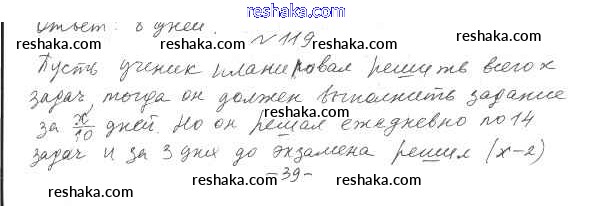 reshaka.com
ответ: 8 дней.
№119
reshaka.com reshaka.com reshaka.com
Пусть ученик планировал решить всего x
задач, тогда он должен выполнить задание
reshaka.com reshaka.com reshaka.com
за x/10 дней. Но он решал ежедневно по 14
задач и за 3 дня до экзамена решил (x-2)
reshaka.com reshaka.com reshaka.com
-39-
reshaka.com